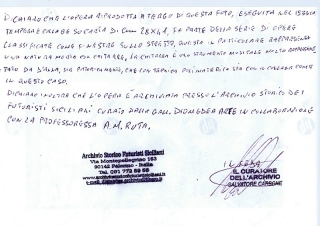 DICHIARO CHE L'OPERA RIPRODOTTA A TERGO DI QUESTA FOTO, ESEGUITA NEL
TEMPERA E CHINE SU CARTA DI Cm 28X41, FA PARTE DELLA SERIE DI OPERE
CLASSIFICATE COME FINESTRE SULLO STESSO, QUESTA IN PARTICOLARE RAPPRESENTA
UNA NATURA MORTA CON CHITARRA, LA CHITARRA È UNO STRUMENTO MUSICALE MOLTO
DA D'ANNA, SIA PITTORICAMENTE, CHE CON TECNICA POLIMATERICA SIA CON IL COLLAGE COME
IN QUESTO CASO.
DICHIARO INOLTRE CHE L'OPERA È ARCHIVIATA PRESSO L'ARCHIVIO STORICO DEI
FUTURISTI SICILIANI CURATO DALLA GALL. DIOMEDEA ARTE IN COLLABORAZIONE
CON LA PROFESSORESSA A.M. RUTA.
Archivio Storico Futuristi Siciliani
Via Montepellegrino 163
90142 Palermo - Italia
Tel. 091
IN FEDE
IL CURATORE
DELL'ARCHIVIO
SALVATORE CARBONE